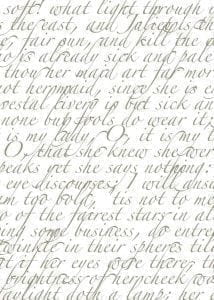 soft! what light through
the east, and Juliet is th
fair sun, and kill the
o is already sick and pale
thou her maid art far mor
not her maid, since she is en
vestal livery is but sick an
none but fools do wear it;
is my lady, O, it is my l
O, that she knew she wer
peaks yet she says nothing:
eye discourses; I will answ
am too bold, 'tis not to me
of the fairest stars in all
ing some business, do entre
twinkle in their spheres till
at if her eyes were there, th
brightness of her cheek wou
aylight doth a lamp; her